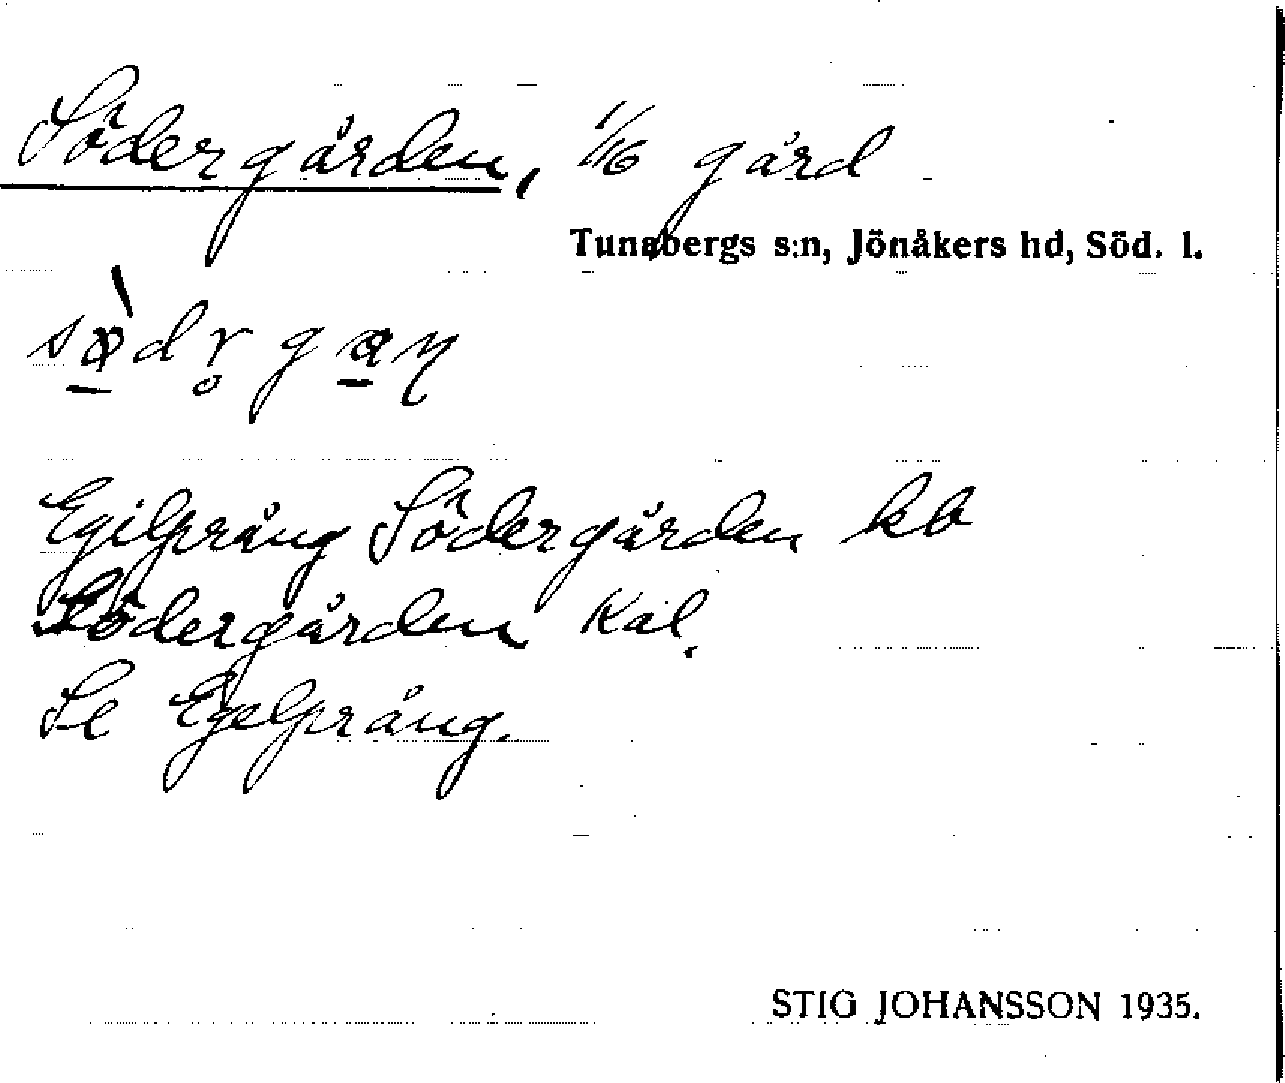 Södergården, 1/16 gård
Tunabergs s:n, Jönåkers hd, Söd. l.
Egilspräng Södergården kb
Södergården Kal.
Se Egelspräng.
STIG JOHANSSON 1935.